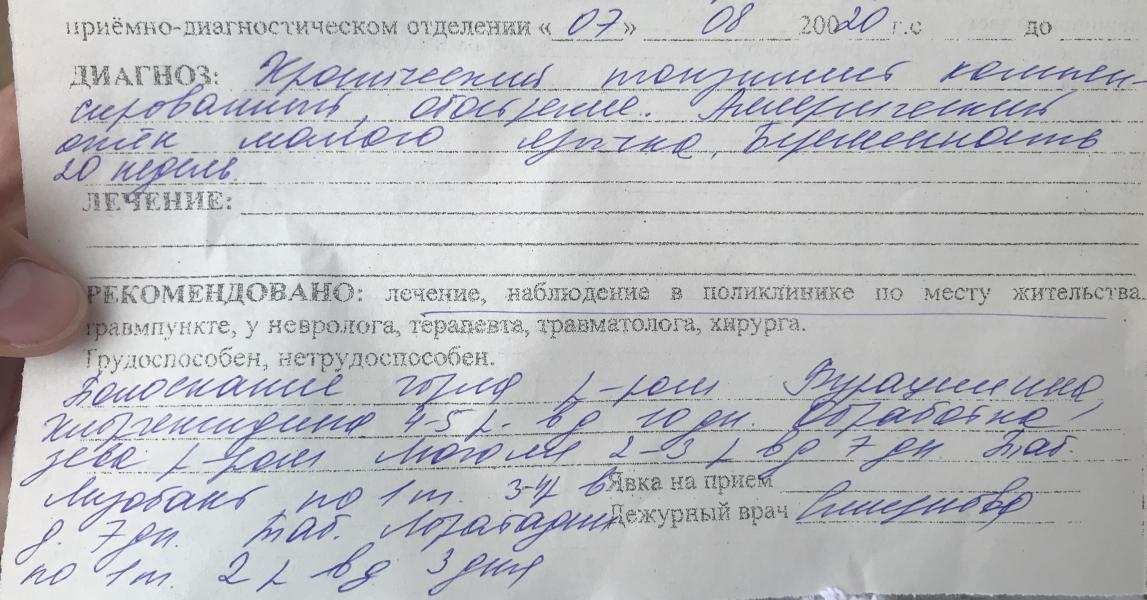 приёмно-диагностическом отделении « 07 » 08 20020 г.с до
ДИАГНОЗ: Хронический тонзиллит компен-
сированный, обострение. Аллергический
отёк малого язычка. Беременность
20 недель
ЛЕЧЕНИЕ:
РЕКОМЕНДОВАНО: лечение, наблюдение в поликлинике по месту жительства
травмпункте, у невролога, терапевта, травматолога, хирурга.
Трудоспособен, нетрудоспособен.
Полоскание горла р-ром Фурацилина,
Хлоргексидина 4-5 р. в д 10 дн. Обработка
зева р-ром Люголя 2-3 р в д 7 дн. Таб.
Лизобакт по 1 т. 3-4 р в Явка на прием
д. 7 дн. Таб. Лоратадин Дежурный врач
по 1 т. 2 р в д 3 дня